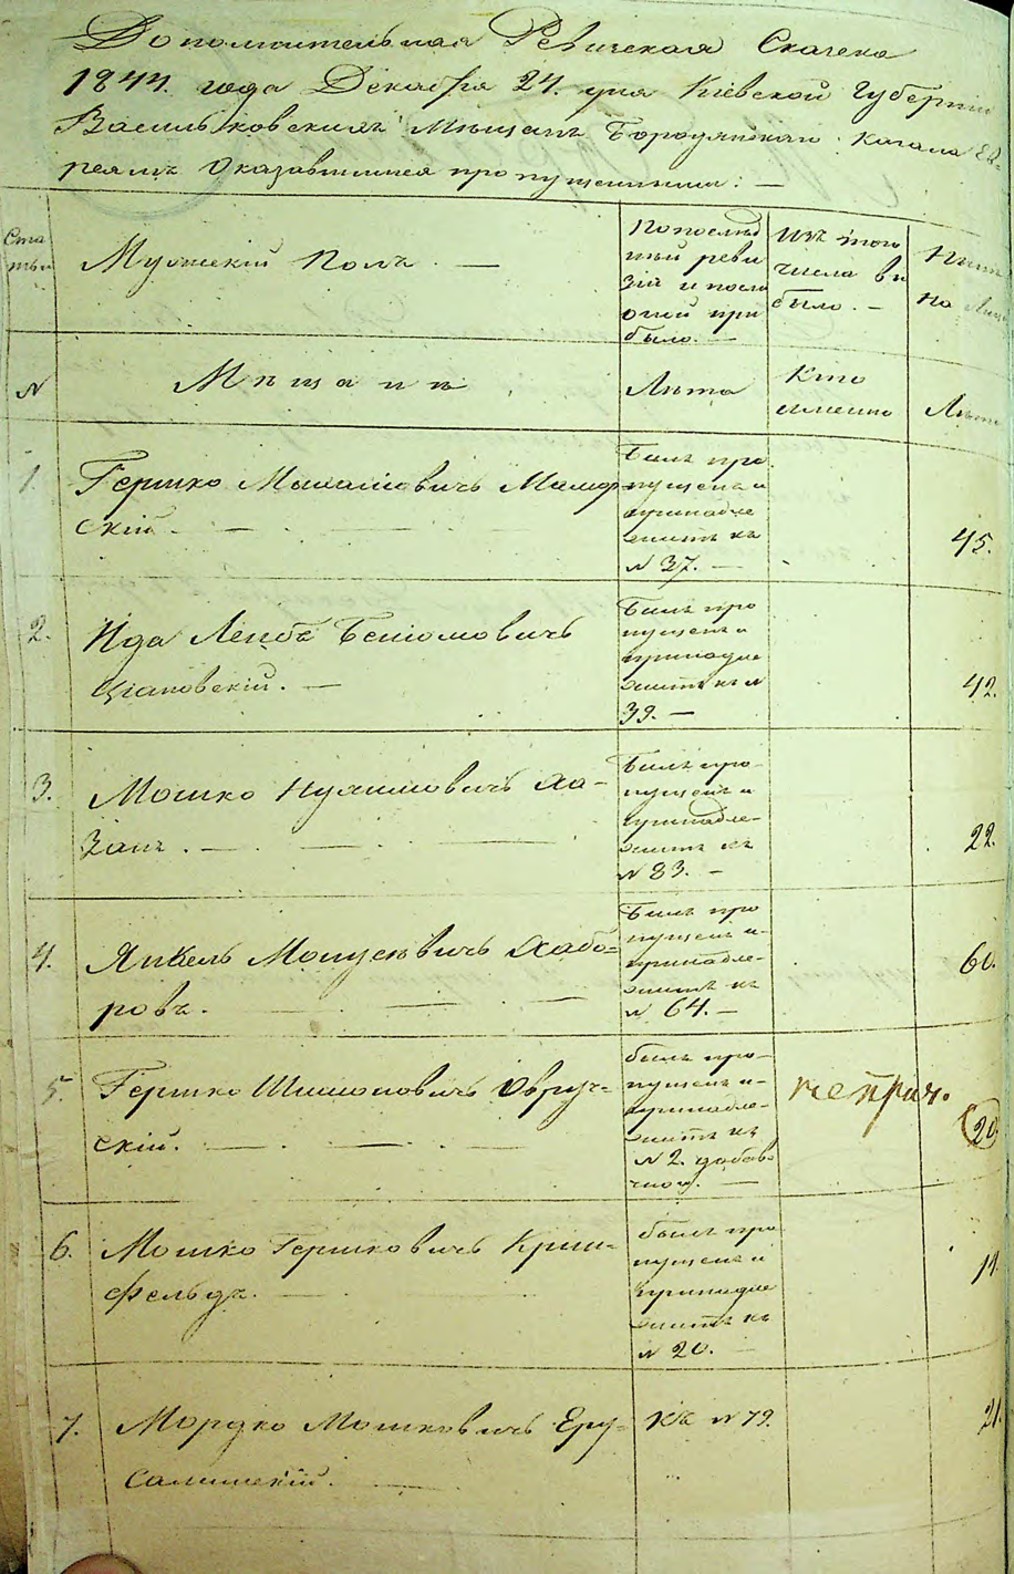 Дополнительная Ревизская Сказска
1844. года Декабря 24. дня Кіевской Губерніи
Васильковскимъ Мѣщанъ Бородянскаго Кагала Ев-
реямъ Оказавшимся пропущенными: —
Ста
тьи
Мужескій Полъ. —
По послѣд
ней реви
зіи и после
оной при
было. —
Изъ того
числа вы
было. —
Нынѣ
На лицо
№
Мѣщане
Лѣта
Кто
именно
Лѣта
1.
Гершко Мошковичъ
скій. —
Былъ про
пущенъ и
принадле
житъ къ
№ 37. —
45.
2.
Ида Лейба Беніомовичъ
Ціановскій. —
Былъ про
пущенъ и
принадле
житъ къ №
39. —
42.
3.
Мошко Нухимовичъ Ха-
занъ. —
Былъ про-
пущенъ и
принадле-
житъ къ
№ 83. —
22.
4.
Янкель Мошковичъ Хабо-
ровъ. —
Былъ про
пущенъ и-
принадле-
житъ къ
№ 64. —
60.
5.
Гершко Шимоновичъ Овруч-
скій. —
былъ про-
пущенъ и-
принадле-
житъ къ
№ 2. добав-
чной. —
не прич.
20.
6.
Мошко Гершковичъ Крин-
фельдъ. —
былъ про
пущенъ и
принадле
житъ къ
№ 20. —
7.
Мордко Мошковичъ Еру-
салимскій. —
Къ № 79.
21.